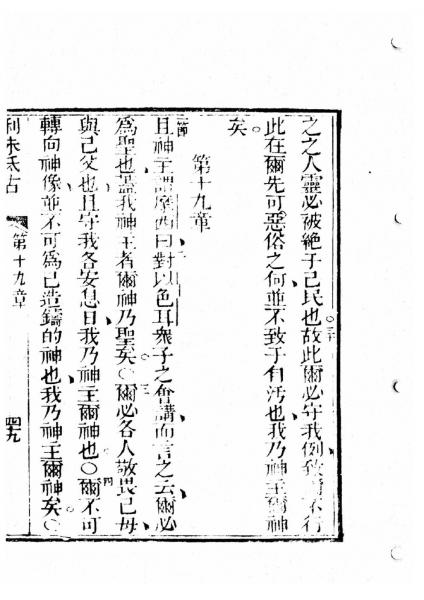 之之人靈必被絕于己民也故此爾必守我例致爾不行
三十
此在爾先可惡俗之何並不致于自汚也我乃神主爾神
矣
第十九章
一節
且神主謂摩西曰對以色耳衆子之會講而言之云爾必
二
爲聖也蓋我神主者爾神乃聖矣○爾必各人敬畏己母
三
與己父也且守我各安息日我乃神主爾神也○爾不可
四
轉向神像並不可爲己造鑄的神也我乃神主爾神矣○
利未氏古
第十九章
四九